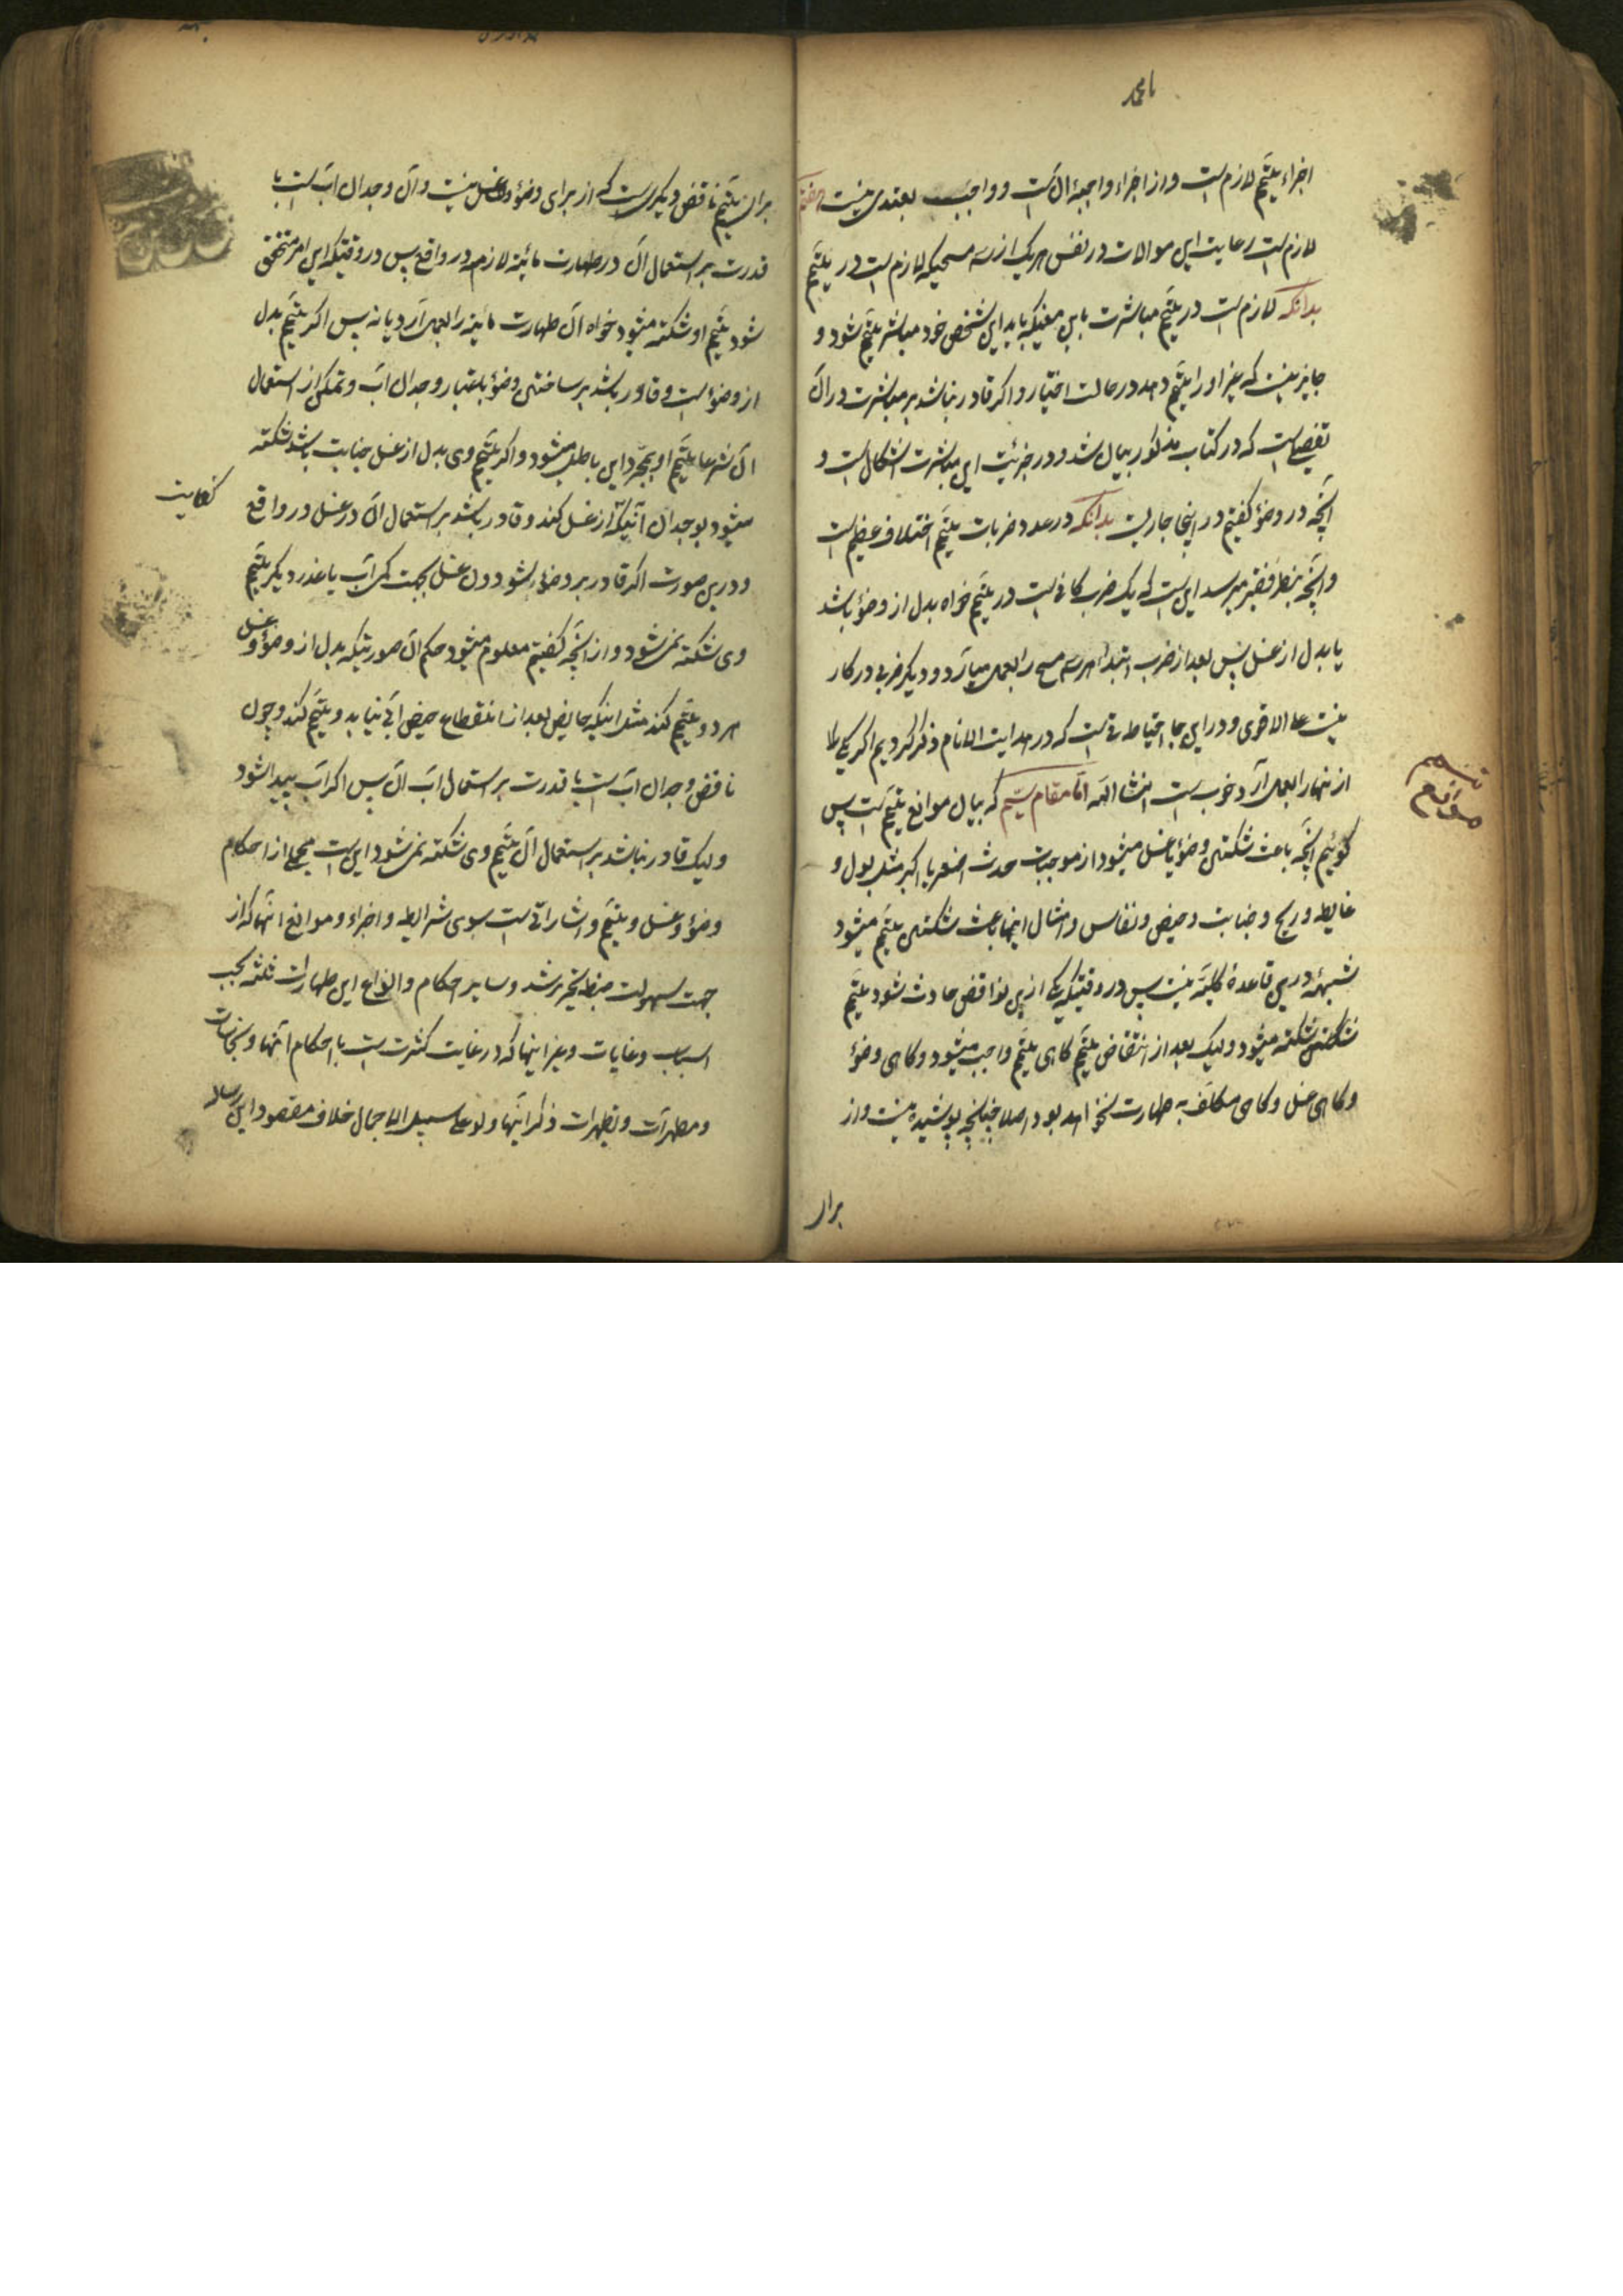 یا محمد
اجزاء تیمم لازم است و از اجزاء واجبهٔ آن است و واجب بعقدی نیست
لازم است رعایت این موالات در نفس هر یک از سه مسحیکه لازم است در تیمم
بدانکه لازم است در تیمم مباشرت باین معنیکه باید این شخص خود مباشر تیمم شود و
جایز نیست که غیر او را تیمم دهد در حالت اختیار و اگر قادر نباشد بر مباشرت در آن
تفصیلی است که در کتاب مذکور بیان شد و در جزئیت این مباشرت اشکال است و
آنچه در وضؤ گفتیم در اینجا جاریست بدانکه در عدد ضربات تیمم اختلاف عظیم است
و آنچه بنظر فقیر میرسد این است که یک ضرب کافی است در تیمم خواه بدل از وضؤ باشد
یا بدل از غسل پس بعد از ضرب ابتداء هر سه مسح را بعمل میآرد و دیگر ضربی در کار
نیست علی الاقوی و در این جا احتیاطاتی است که در هدایت الانام ذکر کردیم اگر یکی را
از نها را بعمل آرد خوب است انشاالله اما مقام سیم که بیان موانع تیمم است پس
گوئیم آنچه باعث شکستن وضؤ یا غسل میشود از موجبات حدث اصغر یا اکبر مثل بول و
غایط و ریح و جنابت و حیض و نفاس و امثال اینها باعث شکستن تیمم میشود
شبههٔ درین قاعدهٔ کلیه نیست پس در وقتیکه یکی ازین نواقض حادث شود تیمم
شکسته میشود ولیک بعد از انتقاض تیمم گاهی تیمم واجب میشود و گاهی وضؤ
و گاهی غسل و گاهی مکلف به طهارت نخواهد بود اصلا چنانچه پوشیده نیست و از
برای
موانع
برای تیمم ناقض دیگریست که از برای وضؤ و غسل نیست و آن وجدان آب است با
قدرت بر استعمال آن در طهارت مائیه لازمه در واقع پس در وقتیکه این امر متحقق
شود تیمم او شکسته میشود خواه آن طهارت مائیه را بعمل آرد یا نه پس اگر تیمم بدل
از وضؤ است و قادر باشد بر ساختن وضؤ باعتبار وجدان آب و تمکن از استعمال
آن شرعا تیمم او بمجرد این باطل میشود و اگر تیمم وی بدل از غسل جنابت باشد شکسته
میشود بوجدان آبیکه از غسل کند و قادر باشد بر استعمال آن در غسل در واقع
کفایت
و درین صورت اگر قادر بر وضؤ شود دون غسل بجهت کمی آب یا عذر دیگر تیمم
وی شکسته نمیشود و از آنچه گفتیم معلوم میشود حکم آن صورتیکه بدل از وضؤ و غسل
هر دو تیمم کند مثل اینکه حایض بعد از انقطاع حیض آبی نیابد و تیمم کند و چون
ناقض وجدان آب است با قدرت بر استعمال آب آن پس اگر آب پیدا شود
ولیک قادر نباشد بر استعمال آن تیمم وی شکسته نمیشود این است مجملی از احکام
وضؤ و غسل و تیمم و اشاراتی است بسوی شرایط و اجزاء و موانع آنها که از
جهت سهولت ضبط تحریر شد و سایر احکام و انواع این طهارات ثلثه بحسب
اسباب و غایات و غیر اینها که در غایت کثرت است با احکام آنها و نجاسات
و مطهرات و تطهیرات ذکر اینها ولو علی سبیل الاجمال خلاف مقصود این رساله